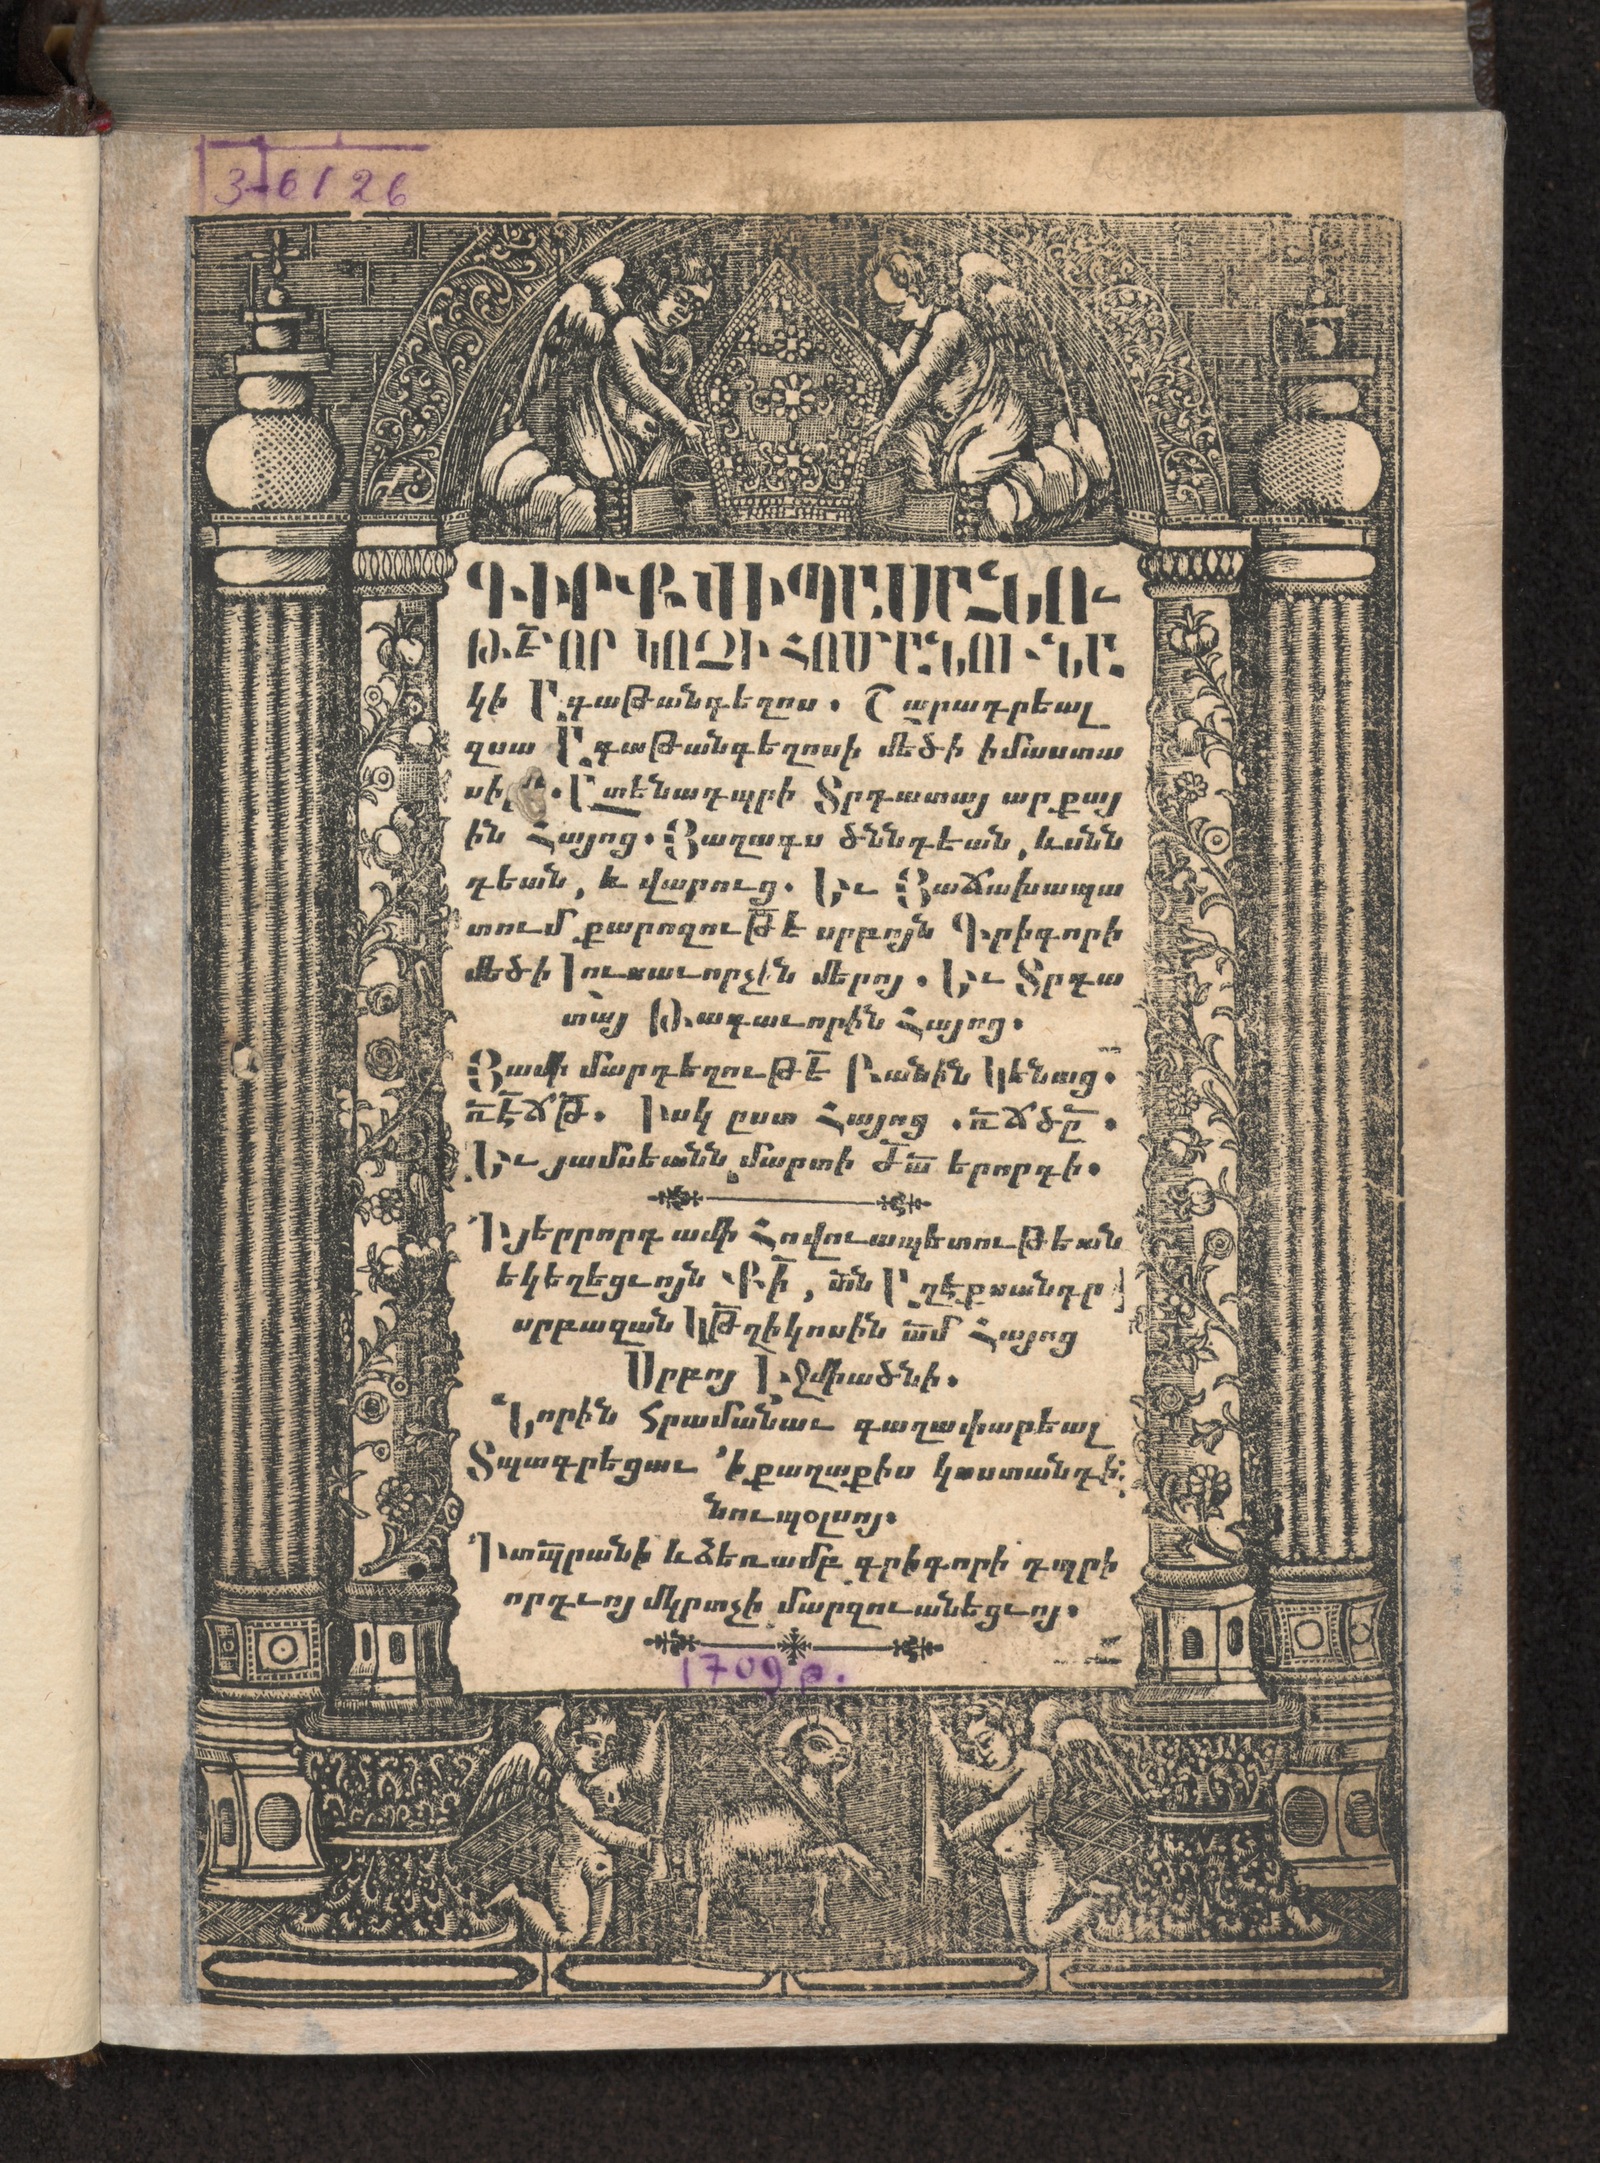 3-6126
ԳԻՐՔ ՎԻՊԱՍԱՆՈՒ-
ԹԷ՟ ՈՐ ԿՈՉԻ ՀՈՄԱՆՈՒՆԱ
կի Ագաթանգեղոս. Շարադրեալ
զսա Ագաթանգեղոսի մեծի իմաստա
սիր. Ատենադպրի Տրդատայ արքայ
ին Հայոց. Յաղագս ծննդեան, և սնն
դեան, և վարուց. Եւ Յաճախապա
տում քարոզութէ՟ սրբոյն Գրիգորի
մեծի լուսաւորչին մերոյ. Եւ Տրդա
տայ Թագաւորին Հայոց.
Յամի մարդեղութէ՟ Բանին Կենաց.
ռէճթ. Իսկ ըստ Հայոց .ռճծը.
Եւ յամսեանն մարտի ժա երորդի.
Ի յերրորդ ամի Հովուապետութեան
եկեղեցւոյն Քի՟, տն Աղէքսանդր
սրբազան Կթղիկոսին ամ Հայոց
Սրբոյ Էջմիածնի.
Նորին Հրամանաւ գաղափարեալ
Տպագրեցաւ ՚ի քաղաքիս կոստանդի
նուպօլսոյ.
Ի տպրանի և ձեռամբ գրիգորի դպրի
որդւոյ մկրտչի մարզուանեցւոյ.
1709 թ.